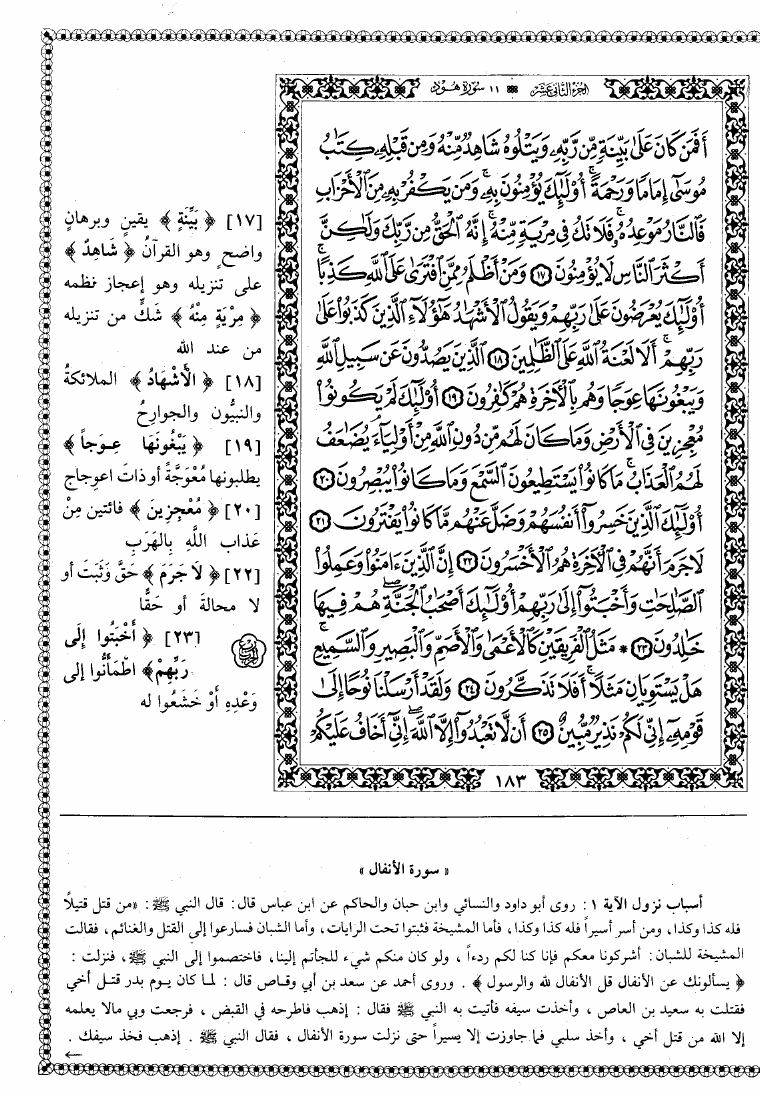 الجزء الثاني عشر ۞ ١١ سورة هود
أَفَمَن كَانَ عَلَىٰ بَيِّنَةٍ مِّن رَّبِّهِۦ وَيَتْلُوهُ شَاهِدٌ مِّنْهُ وَمِن قَبْلِهِۦ كِتَٰبُ
مُوسَىٰٓ إِمَامًا وَرَحْمَةً ۚ أُو۟لَٰٓئِكَ يُؤْمِنُونَ بِهِۦ ۚ وَمَن يَكْفُرْ بِهِۦ مِنَ ٱلْأَحْزَابِ
فَٱلنَّارُ مَوْعِدُهُۥ ۚ فَلَا تَكُ فِى مِرْيَةٍ مِّنْهُ ۚ إِنَّهُ ٱلْحَقُّ مِن رَّبِّكَ وَلَٰكِنَّ
أَكْثَرَ ٱلنَّاسِ لَا يُؤْمِنُونَ ١٧ وَمَنْ أَظْلَمُ مِمَّنِ ٱفْتَرَىٰ عَلَى ٱللَّهِ كَذِبًا ۚ
أُو۟لَٰٓئِكَ يُعْرَضُونَ عَلَىٰ رَبِّهِمْ وَيَقُولُ ٱلْأَشْهَٰدُ هَٰٓؤُلَآءِ ٱلَّذِينَ كَذَبُوا۟ عَلَىٰ
رَبِّهِمْ ۚ أَلَا لَعْنَةُ ٱللَّهِ عَلَى ٱلظَّٰلِمِينَ ١٨ ٱلَّذِينَ يَصُدُّونَ عَن سَبِيلِ ٱللَّهِ
وَيَبْغُونَهَا عِوَجًا وَهُم بِٱلْأَخِرَةِ هُمْ كَٰفِرُونَ ١٩ أُو۟لَٰٓئِكَ لَمْ يَكُونُوا۟
مُعْجِزِينَ فِى ٱلْأَرْضِ وَمَا كَانَ لَهُم مِّن دُونِ ٱللَّهِ مِنْ أَوْلِيَآءَ ۘ يُضَٰعَفُ
لَهُمُ ٱلْعَذَابُ ۚ مَا كَانُوا۟ يَسْتَطِيعُونَ ٱلسَّمْعَ وَمَا كَانُوا۟ يُبْصِرُونَ ٢٠
أُو۟لَٰٓئِكَ ٱلَّذِينَ خَسِرُوٓا۟ أَنفُسَهُمْ وَضَلَّ عَنْهُم مَّا كَانُوا۟ يَفْتَرُونَ ٢١
لَا جَرَمَ أَنَّهُمْ فِى ٱلْأَخِرَةِ هُمُ ٱلْأَخْسَرُونَ ٢٢ إِنَّ ٱلَّذِينَ ءَامَنُوا۟ وَعَمِلُوا۟
ٱلصَّٰلِحَٰتِ وَأَخْبَتُوٓا۟ إِلَىٰ رَبِّهِمْ أُو۟لَٰٓئِكَ أَصْحَٰبُ ٱلْجَنَّةِ ۖ هُمْ فِيهَا
خَٰلِدُونَ ٢٣ ۞ مَثَلُ ٱلْفَرِيقَيْنِ كَٱلْأَعْمَىٰ وَٱلْأَصَمِّ وَٱلْبَصِيرِ وَٱلسَّمِيعِ ۚ
هَلْ يَسْتَوِيَانِ مَثَلًا ۚ أَفَلَا تَذَكَّرُونَ ٢٤ وَلَقَدْ أَرْسَلْنَا نُوحًا إِلَىٰ
قَوْمِهِۦٓ إِنِّى لَكُمْ نَذِيرٌ مُّبِينٌ ٢٥ أَن لَّا تَعْبُدُوٓا۟ إِلَّا ٱللَّهَ ۖ إِنِّىٓ أَخَافُ عَلَيْكُمْ
١٨٣
[١٧] ﴿ بَيِّنَةٍ ﴾ يقينٍ وبرهانٍ
واضحٍ وهو القرآنُ ﴿ شَاهِدٌ ﴾
على تنزيله وهو إعجاز نظمه
﴿ مِرْيَةٍ مِنْهُ ﴾ شكٍّ من تنزيله
من عند الله
[١٨] ﴿ الْأَشْهَادُ ﴾ الملائكةُ
والنبيُّون والجوارحُ
[١٩] ﴿ يَبْغُونَهَا عِوَجاً ﴾
يطلبونها مُعْوَجَّةً أو ذاتَ اعوجاج
[٢٠] ﴿ مُعْجِزِينَ ﴾ فائتين مِنْ
عَذاب اللَّهِ بِالهَرَبِ
[٢٢] ﴿ لَا جَرَمَ ﴾ حَقَّ وَثَبَتَ أو
لا محالةَ أو حَقًّا
[٢٣] ﴿ أَخْبَتُوا إِلَى
رَبِّهِمْ ﴾ اطْمَأَنُّوا إلى
وَعْدِهِ أَوْ خَشَعُوا له
« سورة الأنفال »
أسباب نزول الآية ١ : روى أبو داود والنسائي وابن حبان والحاكم عن ابن عباس قال: قال النبي ﷺ : «من قتل قتيلاً
فله كذا وكذا، ومن أسر أسيراً فله كذا وكذا، فأما المشيخة فثبتوا تحت الرايات، وأما الشبان فسارعوا إلى القتل والغنائم، فقالت
المشيخة للشبان: أشركونا معكم فإنا كنا لكم ردءاً ، ولو كان منكم شيء للجأتم إلينا، فاختصموا إلى النبي ﷺ ، فنزلت :
﴿ يسألونك عن الأنفال قل الأنفال لله والرسول ﴾ . وروى أحمد عن سعد بن أبي وقاص قال : لما كان يوم بدر قتل أخي
فقتلت به سعيد بن العاص ، وأخذت سيفه فأتيت به النبي ﷺ فقال : إذهب فاطرحه في القبض ، فرجعت وبي مالا يعلمه
إلا الله من قتل أخي ، وأخذ سلبي فما جاوزت إلا يسيراً حتى نزلت سورة الأنفال ، فقال النبي ﷺ . إذهب فخذ سيفك .
←